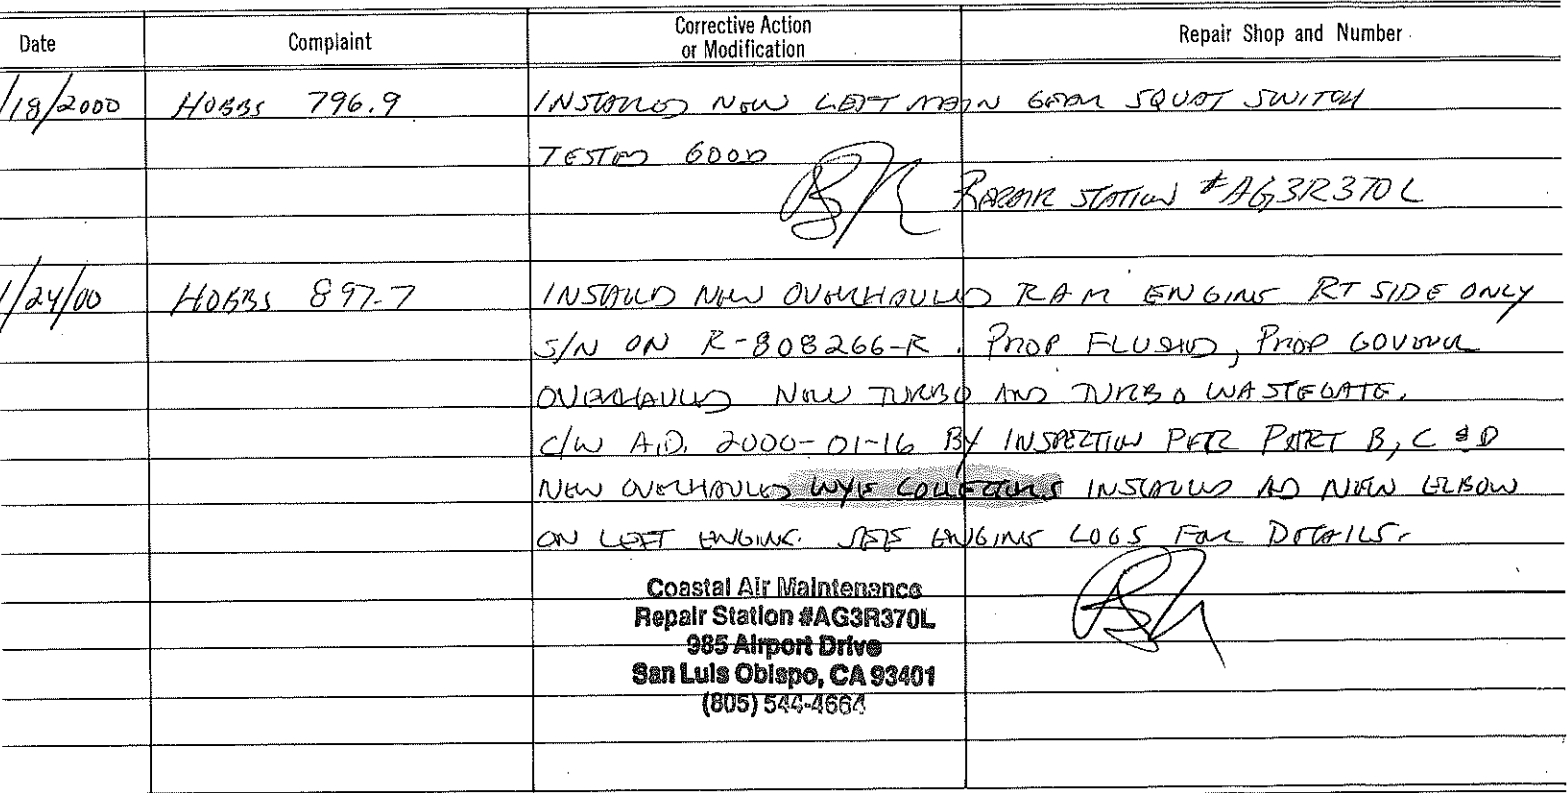 Date Complaint Corrective Action or Modification Repair Shop and Number
/18/2000 HOBBS 796.9 INSTALLED NEW LEFT MAIN GEAR SQUAT SWITCH
TESTED GOOD
REPAIR STATION #AG3R370L
/24/00 HOBBS 897.7 INSTALLED NEW OVERHAULED RAM ENGINE RT SIDE ONLY
S/N ON R-808266-R. PROP FLUSHED, PROP GOVENOR
OVERHAULED NEW TURBO AND TURBO WASTEGATE.
C/W A.D. 2000-01-16 BY INSPECTION PER PART B, C & D
NEW OVERHAULED WYE COLLECTORS INSTALLED AD NEW ELBOW
ON LEFT ENGINE. SEE ENGINE LOGS FOR DETAILS.
Coastal Air Maintenance
Repair Station #AG3R370L
985 Airport Drive
San Luis Obispo, CA 93401
(805) 544-4664